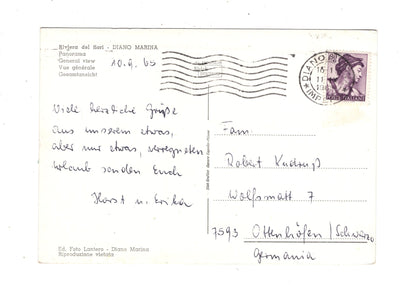 Riviera dei fiori - DIANO MARINA
Panorama
General view
Vue générale
Gesamtansicht
10.9.65
DIANO
Viele herzliche Grüße
aus unserem etwas,
aber nur etwas, verregneten
Urlaub senden Euch
Horst u. Erika
Fam.
Robert Kudruß
Wolfsmatt 7
7593 Ottenhöfen/Schwarzw
Germania
Ed. Foto Lantero - Diano Marina
Riproduzione vietata